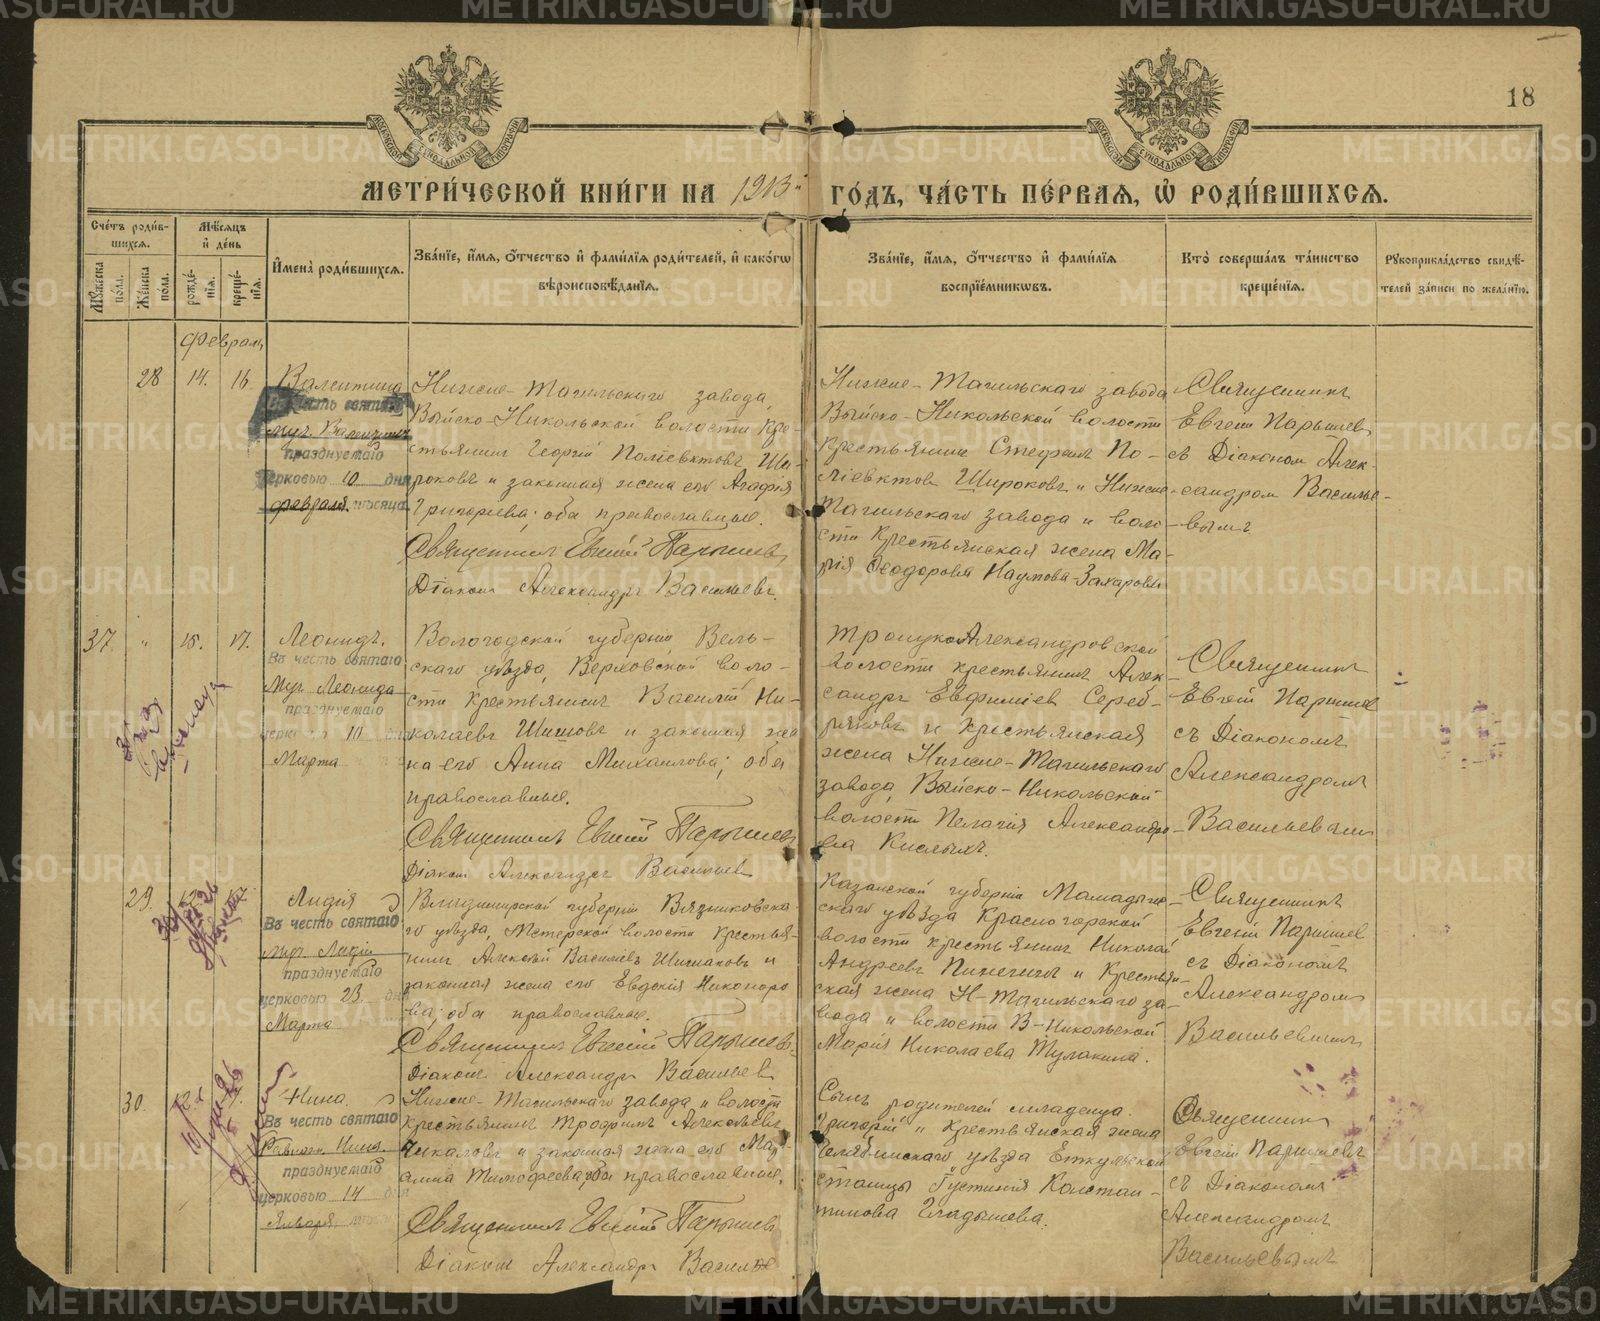 18
МОСКОВСКОЙ СѴНОДАЛЬНОЙ ТИПОГРАФІИ
МОСКОВСКОЙ СѴНОДАЛЬНОЙ ТИПОГРАФІИ
МЕТРИ́ЧЕСКОЙ КНИ́ГИ НА 1913й ГО́ДЪ, ЧА́СТЬ ПЕ́РВАЯ, Ѡ РОДИ́ВШИХСЯ.
Сче́тъ роди́в-
шихся.
Мужеска по́ла.
Же́нска по́ла.
Мѣ́сяцъ и де́нь
рожде́нїя.
креще́нїя.
И҆мена̀ роди́вшихся.
Зва́нїе, и҆́мя, ѻ҆́тчество и҆ фами́лїя роди́телей, и҆ како́гѡ
вѣроисповѣ́данїя.
Зва́нїе, и҆́мя, ѻ҆́тчество и҆ фами́лїя
воспрїе́мникѡвъ.
Кто̀ соверша́лъ та́инство
креще́нїя.
Рукоприкла́дство свидѣ́-
телей за́писи по жела́нїю.
Февраль
28 14. 16.
Валентина
Въ честь святаго
муч. Валентины
празднуемаго
церковью 10 дня
февраля. мѣсяца.
Нижне-Тагильскаго завода,
Выйско-Никольской волости кре-
стьянинъ Георгій Поліевктовъ Ши-
роковъ и законная жена его Агафія
Григорьева; оба православные.
Священникъ Евгеній Парышевъ
Діаконъ Александръ Васильевъ.
Нижне-Тагильскаго завода
Выйско-Никольской волости
крестьянинъ Стефанъ По-
ліевктовъ Широковъ и Нижне-
Тагильскаго завода и воло-
сти крестьянская жена Ма-
рія Ѳеодорова Наумова-Захарова
Священникъ
Евгеній Парышевъ
съ Діакономъ Алек-
сандромъ Василье-
вымъ
37. " 15. 17.
Леонидъ.
Въ честь святаго
муч Леонида
празднуемаго
церковью 10 дня
Марта
Вологодской губерніи, Вель-
скаго уѣзда, Верховской воло-
сти крестьянинъ Василій Ни-
колаевъ Шишовъ и законная же
на его Анна Михаилова; оба
православные.
Священникъ Евгеній Парышевъ
Діаконъ Александръ Васильевъ
Троицко-Александровской
волости крестьянинъ Алек-
сандръ Евфиміевъ Сереб-
ряковъ и крестьянская
жена Нижне-Тагильскаго
завода, Выйско-Никольской
волости Пелагія Александро-
ва Кислыхъ.
Священникъ
Евгеній Парышевъ
съ Діакономъ
Александромъ
Васильевымъ
29. 17.
Лидія
Въ честь святаго
муч. Лидіи
празднуемаго
церковью 23. дня
Марта
Владимирской губерніи Вязниковска-
го уѣзда, Мстерской волости крестья-
нинъ Алексѣй Васильевъ Шишаковъ и
законная жена его Евдокія Никоноро
ва; оба православные.
Священникъ Евгеній Парышевъ
Діаконъ Александръ Васильевъ
Казанской губерніи Мамадыш-
скаго уѣзда Красногорской
волости крестьянинъ Николай
Андреевъ Пинегинъ и крестьян-
ская жена Н-Тагильскаго за-
вода и волости В-Никольской
Марія Николаева Тулакина.
Священникъ
Евгеній Парышевъ
съ Діакономъ
Александромъ
Васильевымъ
30.
Нина.
Въ честь святаго
Равноап. Нины.
празднуемаго
церковью 14 дня
Января.
Нижне-Тагильскаго завода и волости
крестьянинъ Трофимъ Алексѣевъ
Чикаловъ и законная жена его Мар-
оба православные.
Священникъ Евгеній Парышевъ
Діаконъ Александръ Василье
Сынъ родителей младенца
Григорій и крестьянская жена
Челябинскаго уѣзда Еткульской
станицы Іустинія Констан-
тинова Гладышева.
Священникъ
Евгеній Парышевъ
съ Діакономъ
Александромъ
Васильевымъ
METRIKI.GASO-URAL.RU